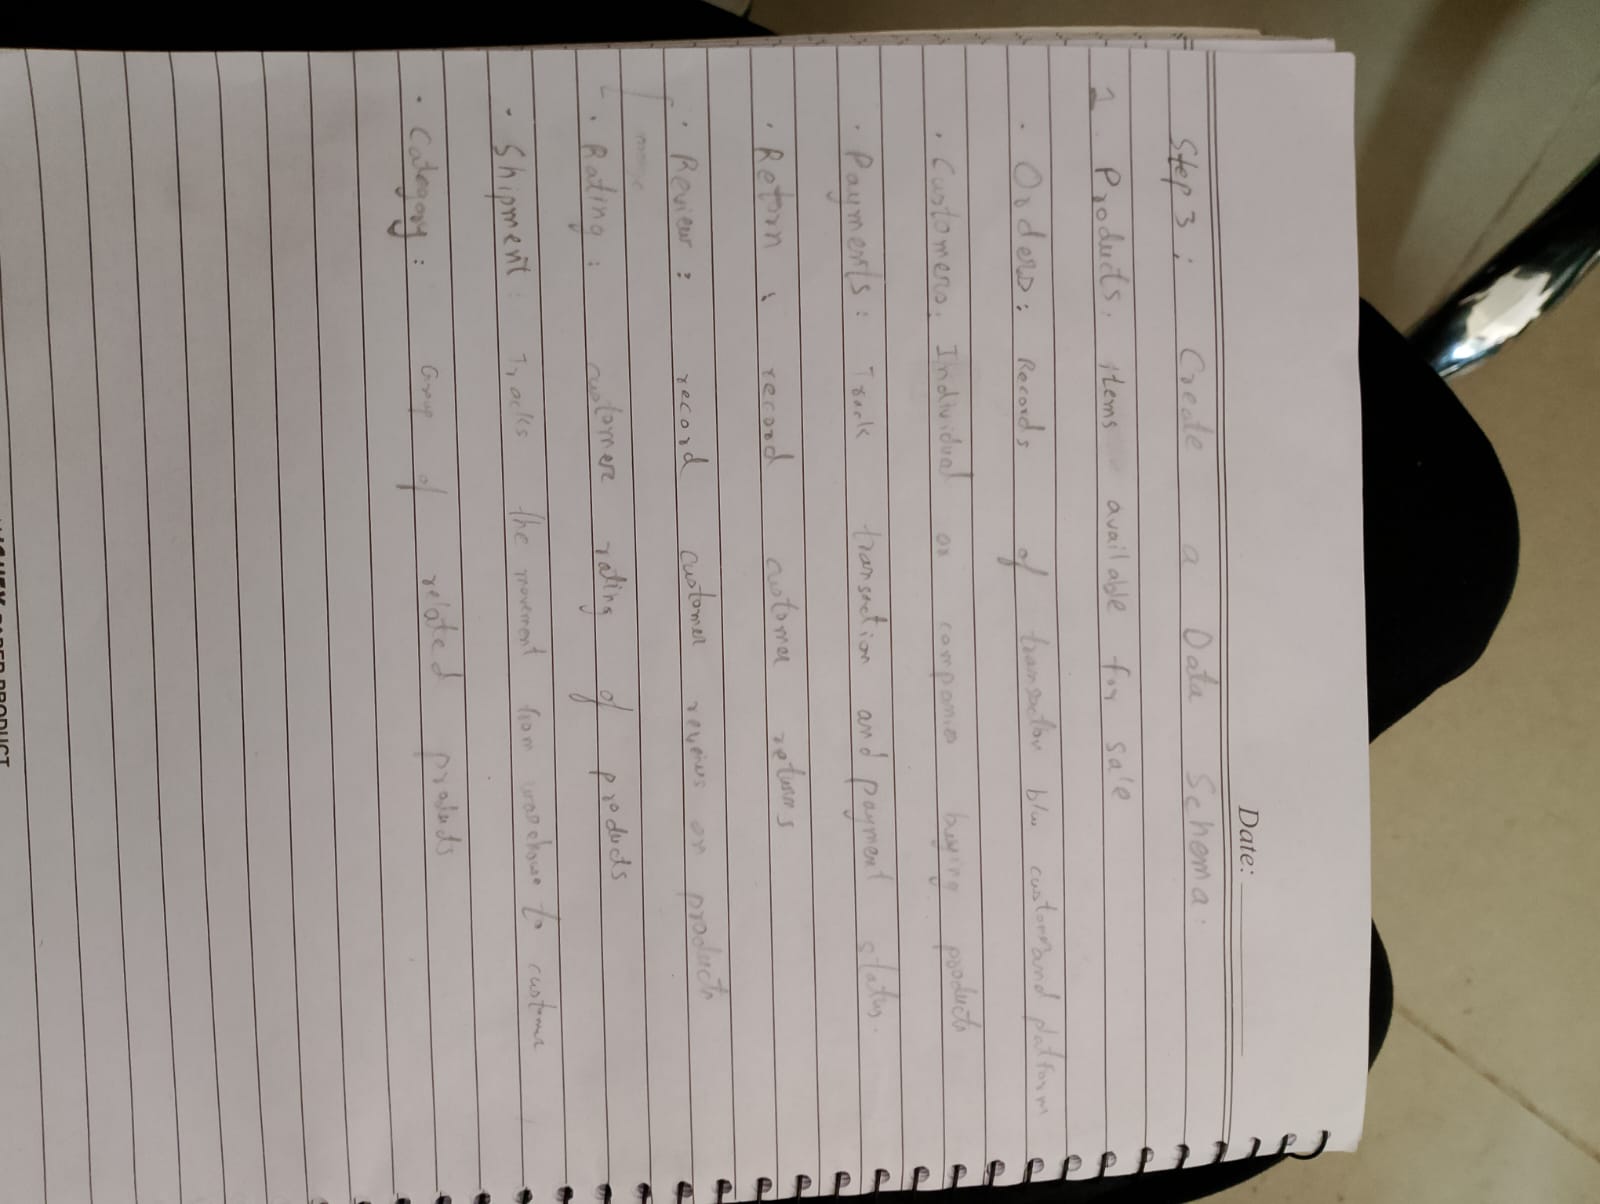 Date:
Step 3: Create a Data Schema.
1. Products. items available for sale
· Orders: Records of transaction b/w customer and platform
· Customers. Individual or companies buying products
· Payments: Track transaction and payment status.
· Return : record customer returns
· Review : record customer reveiws on products
· Rating : customer rating of products
· Shipment: Tracks the movement from warehouse to customer
· Category: Group of related products
PAPER PRODUCT